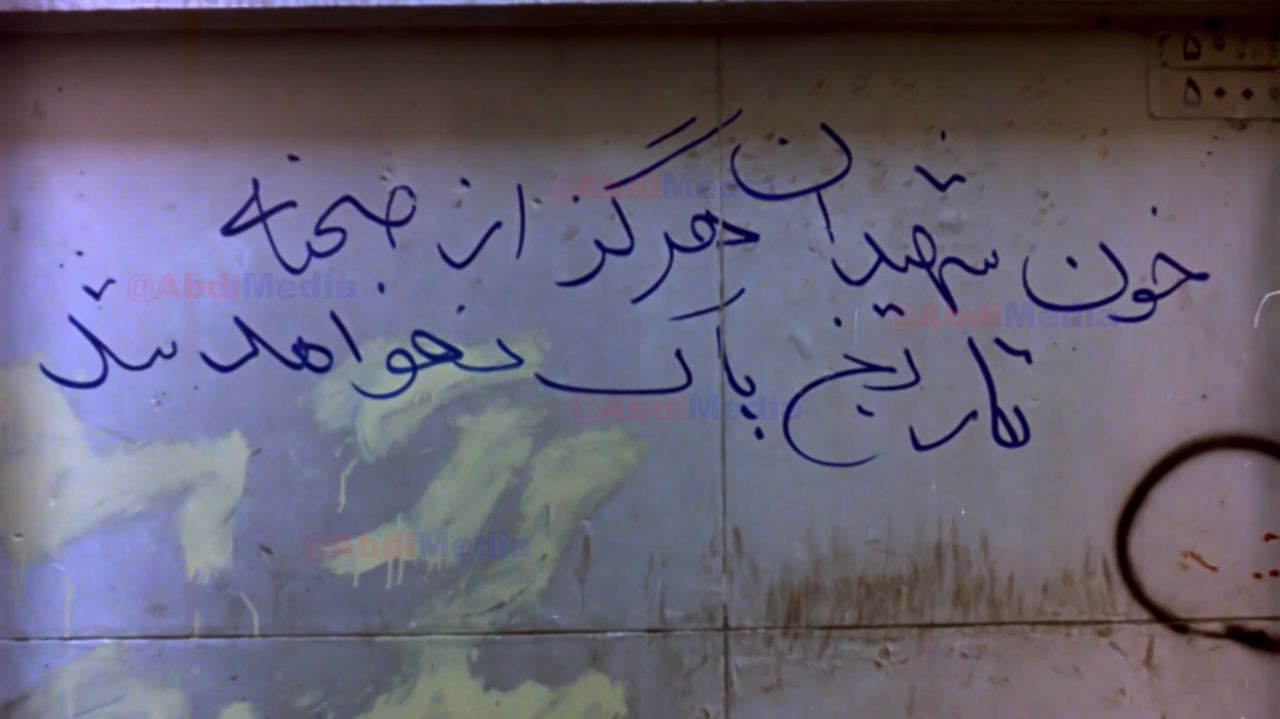 ۵۰
۵۰۰۰
خون شهیدان هرگز از صحنه
تاریخ پاک نخواهد شد
@AbdiMedia
@AbdiMedia
@AbdiMedia
@AbdiMedia
@AbdiMedia